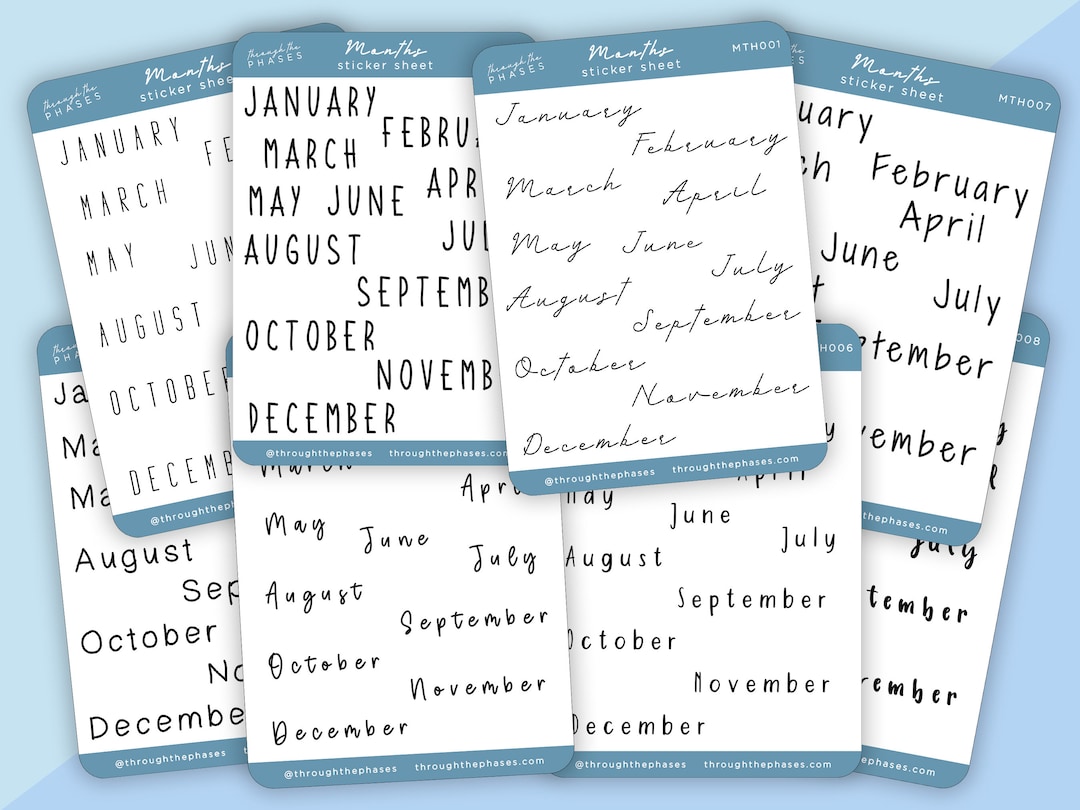 through the
PHASES
Months
sticker sheet
JANUARY
MARCH
MAY
AUGUST
OCTOBER
@throughthephases
through the
PHASES
Months
sticker sheet
JANUARY
MARCH
MAY JUNE
AUGUST
OCTOBER
DECEMBER
@throughthephases
throughthephases.com
through the
PHASES
Months
sticker sheet
MTH001
January
February
March
April
May
June
July
August
September
October
November
December
@throughthephases
throughthephases.com
Months
sticker sheet
MTH007
February
April
June
July
August
October
@throughthephases
May
June
July
August
September
October
November
December
@throughthephases
throughthephases.com
June
July
August
September
October
November
December
@throughthephases
throughthephases.com
July